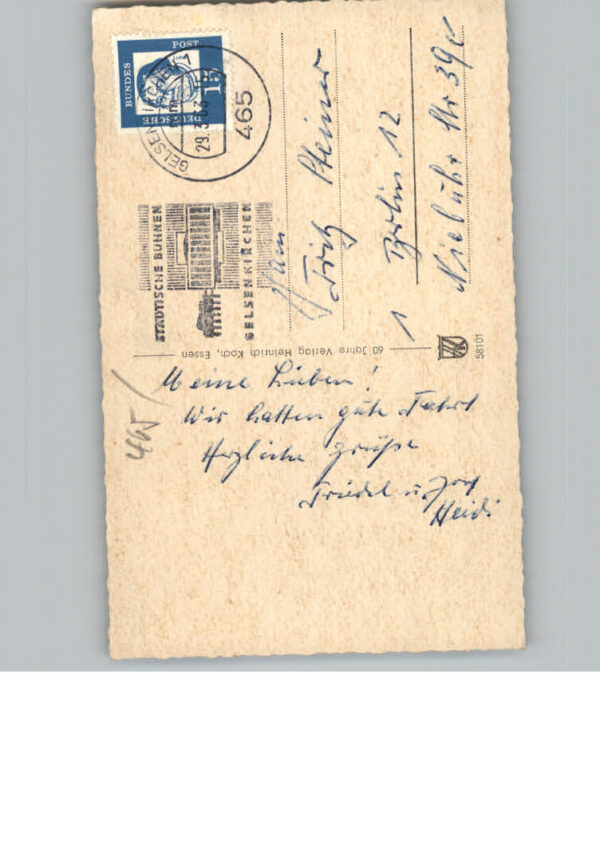 DEUTSCHE
BUNDES
POST
15
GELSENKIRCHEN 1
29.3.63
465
STÄDTISCHE BÜHNEN
GELSENKIRCHEN
Fam
Fritz Pfeiner
1 Berlin 12
Niebuhr Str 39c
60 Jahre Verlag Heinrich Koch, Essen
58101
465
Meine Lieben!
Wir hatten gute Fahrt
Herzliche Grüße
Friedel u.
Heidi